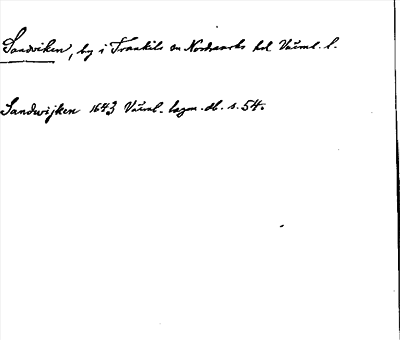 Sandviken, by i Trankils sn Nordmarks hd Värml. l.
Sandwijken 1643 Värml. lagm. db. s. 54.